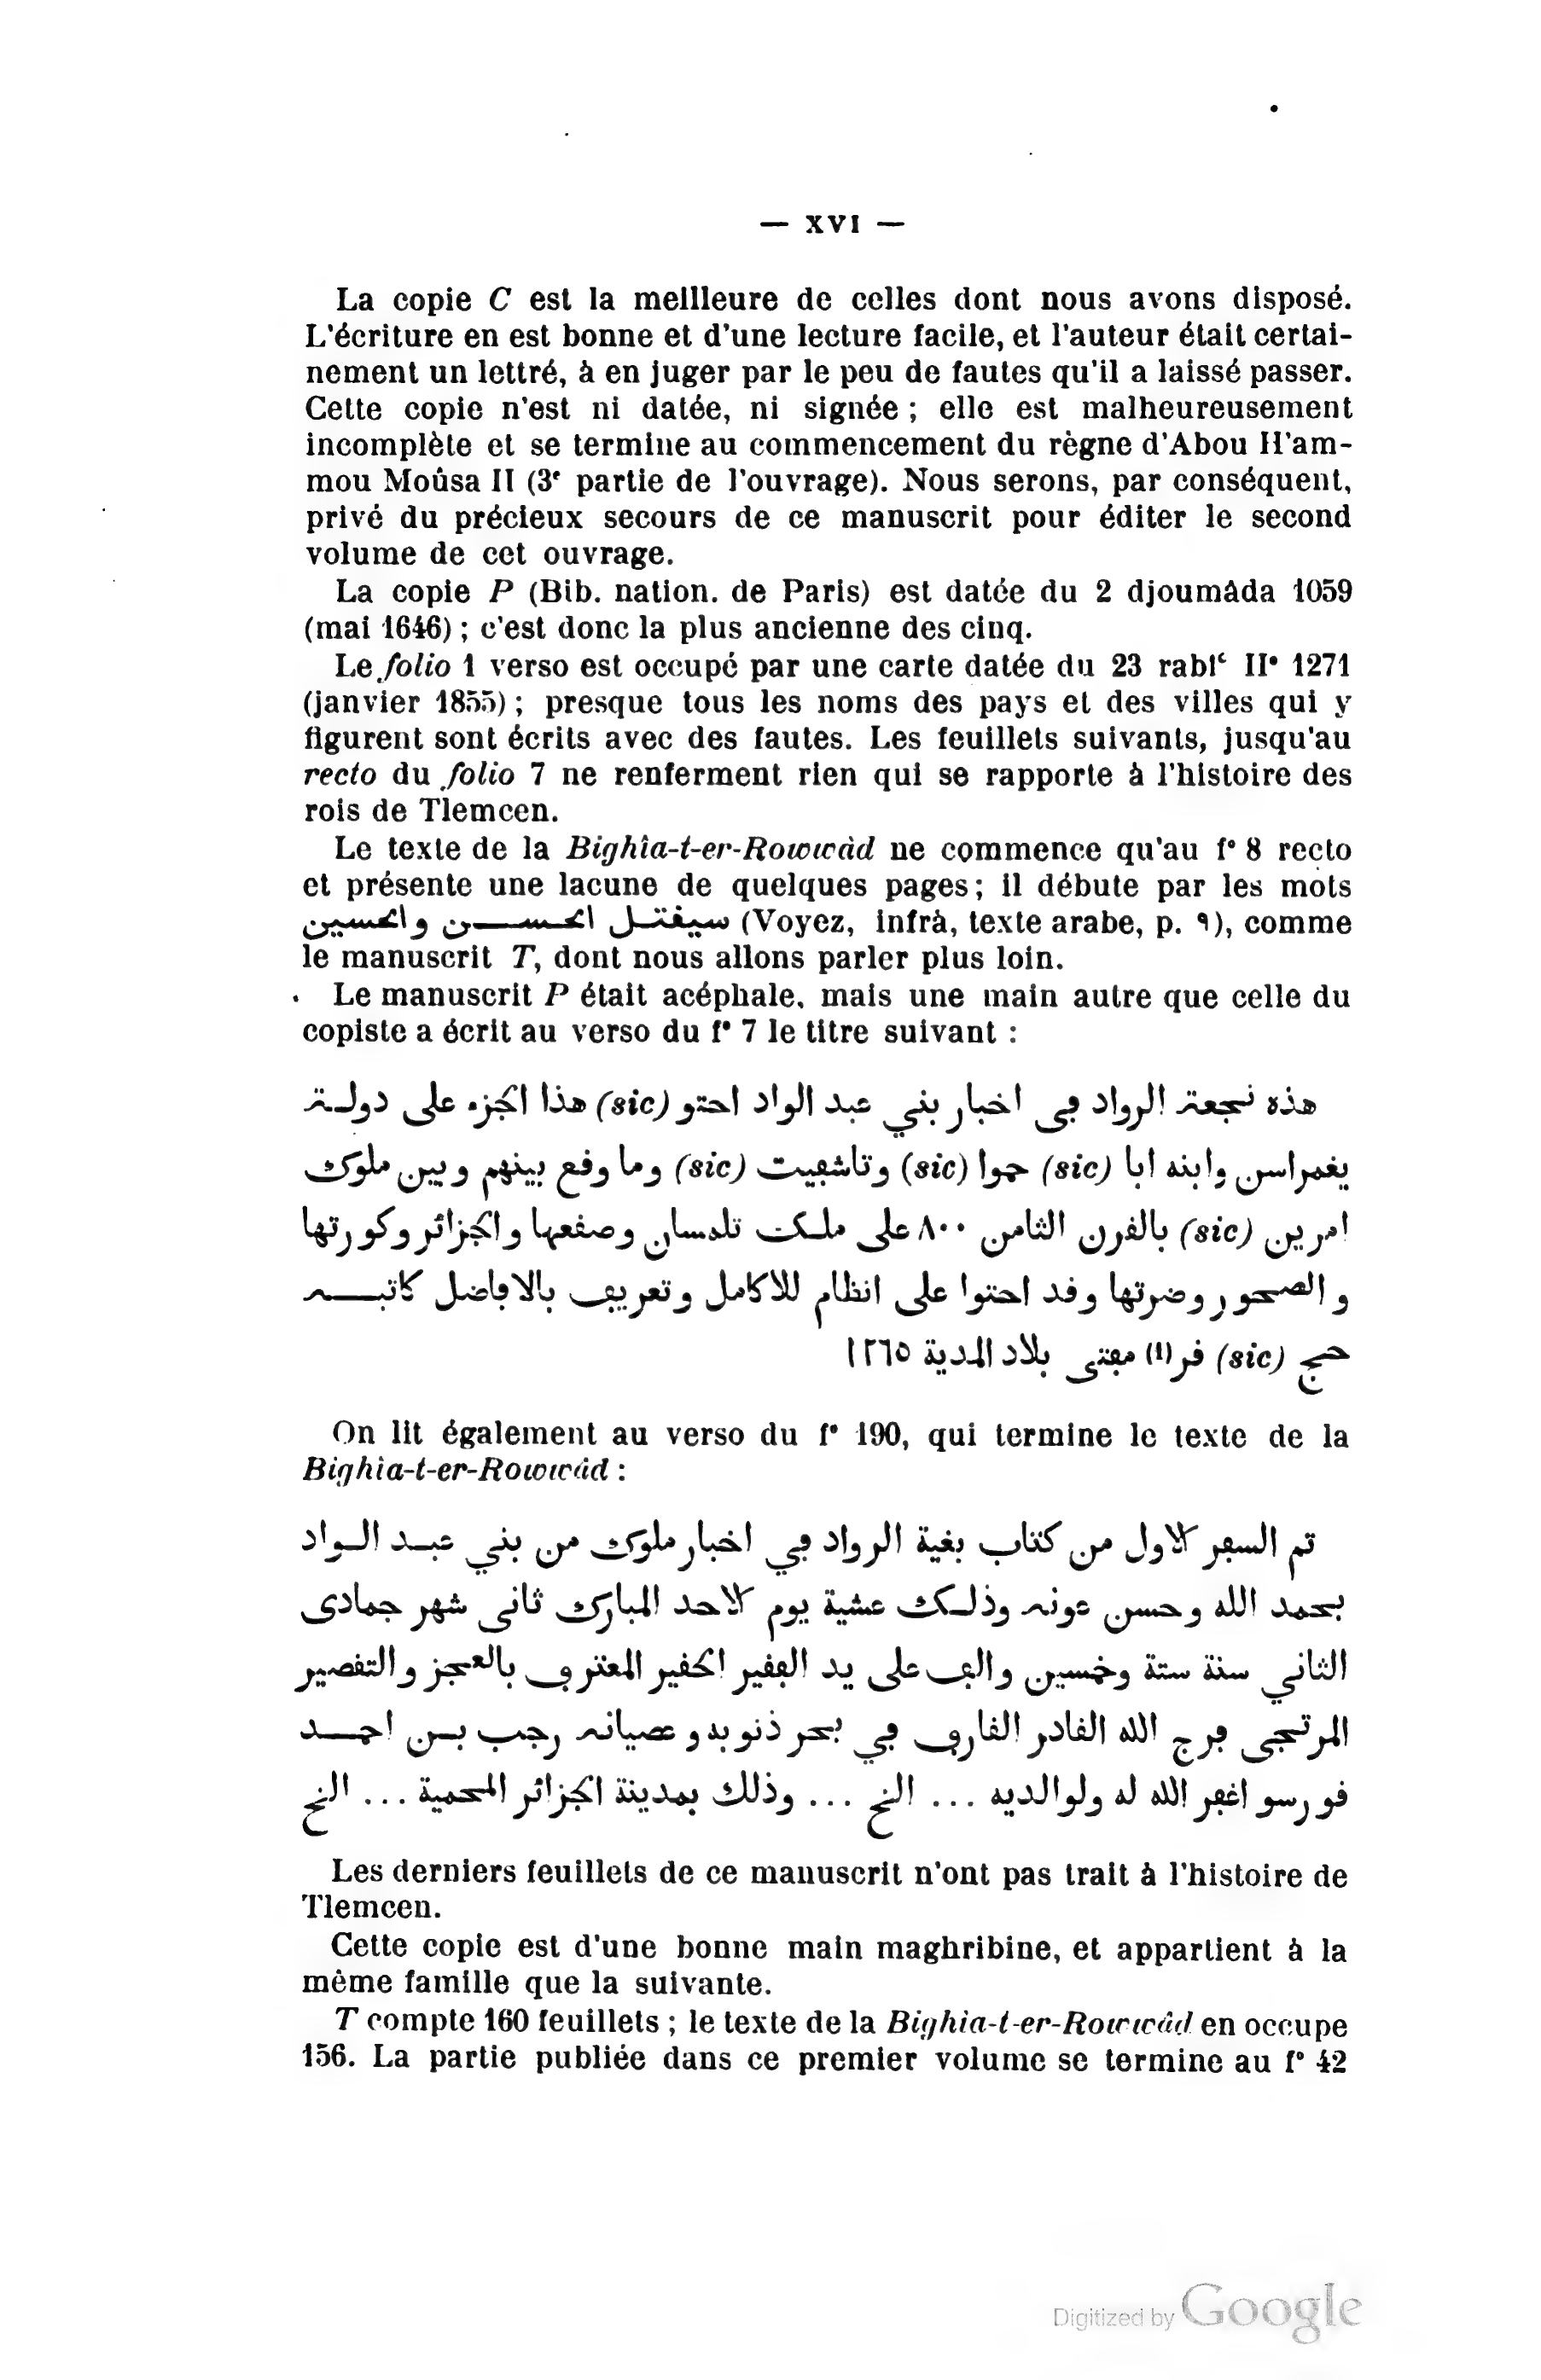 — XVI —
La copie C est la meilleure de celles dont nous avons disposé.
L'écriture en est bonne et d'une lecture facile, et l'auteur était certai-
nement un lettré, à en juger par le peu de fautes qu'il a laissé passer.
Cette copie n'est ni datée, ni signée ; elle est malheureusement
incomplète et se termine au commencement du règne d'Abou H'am-
mou Moûsa II (3ᵉ partie de l'ouvrage). Nous serons, par conséquent,
privé du précieux secours de ce manuscrit pour éditer le second
volume de cet ouvrage.
La copie P (Bib. nation. de Paris) est datée du 2 djoumâda 1059
(mai 1646) ; c'est donc la plus ancienne des cinq.
Le folio 1 verso est occupé par une carte datée du 23 rabîᶜ IIᵉ 1271
(janvier 1855) ; presque tous les noms des pays et des villes qui y
figurent sont écrits avec des fautes. Les feuillets suivants, jusqu'au
recto du folio 7 ne renferment rien qui se rapporte à l'histoire des
rois de Tlemcen.
Le texte de la Bighîa-t-er-Rowwâd ne commence qu'au f° 8 recto
et présente une lacune de quelques pages ; il débute par les mots
سيفتل الحسن والحسين (Voyez, infrà, texte arabe, p. ٩), comme
le manuscrit T, dont nous allons parler plus loin.
Le manuscrit P était acéphale, mais une main autre que celle du
copiste a écrit au verso du f° 7 le titre suivant :
هذه نجعة الرواد في اخبار بني عبد الواد احتو (sic) هذا الجزء على دولة
يغمراسن وابنه ابا (sic) حموا (sic) وتاشفيت (sic) وما وفع بينهم وبين ملوك
امرين (sic) بالفرن الثامن ٨٠٠ على ملك تلمسان وصفعها والجزائر وكورتها
والصحور وضرتها وفد احتوا على انظام للاكامل وتعريف بالافاضل كاتبه
حج (sic) فر (1) مفتى بلاد المدية ١٢٦٥
On lit également au verso du f° 190, qui termine le texte de la
Bighîa-t-er-Rowwâd :
تم السفر الاول من كتاب بغية الرواد في اخبار ملوك من بني عبد الواد
بحمد الله وحسن عونه وذلك عشية يوم الاحد المبارك ثاني شهر جمادى
الثاني سنة ستة وخمسين والف على يد الفقير الحفير المعترف بالعجز والتفصير
المرتجى فرج الله الفادر الفارف في بحر ذنوبه وعصيانه رجب بن احمد
فورسو اغفر الله له ولوالديه ... الخ ... وذلك بمدينة الجزائر المحمية ... الخ
Les derniers feuillets de ce manuscrit n'ont pas trait à l'histoire de
Tlemcen.
Cette copie est d'une bonne main maghribine, et appartient à la
même famille que la suivante.
T compte 160 feuillets ; le texte de la Bighia-t-er-Rowwâd en occupe
156. La partie publiée dans ce premier volume se termine au f° 42
Digitized by Google